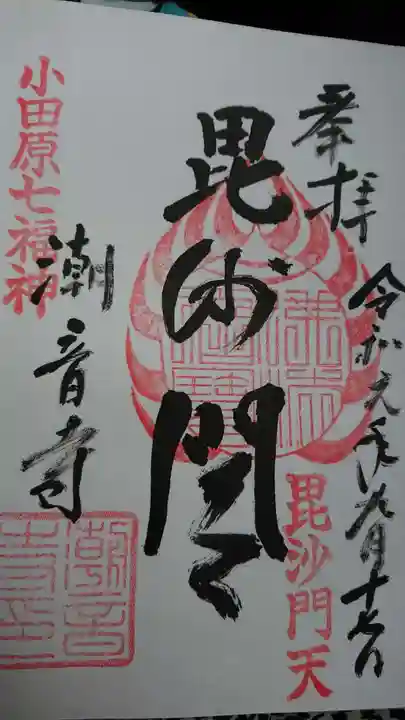 奉拝
令和元年九月十七日
毘沙門天
毘沙門天
小田原七福神
潮音寺